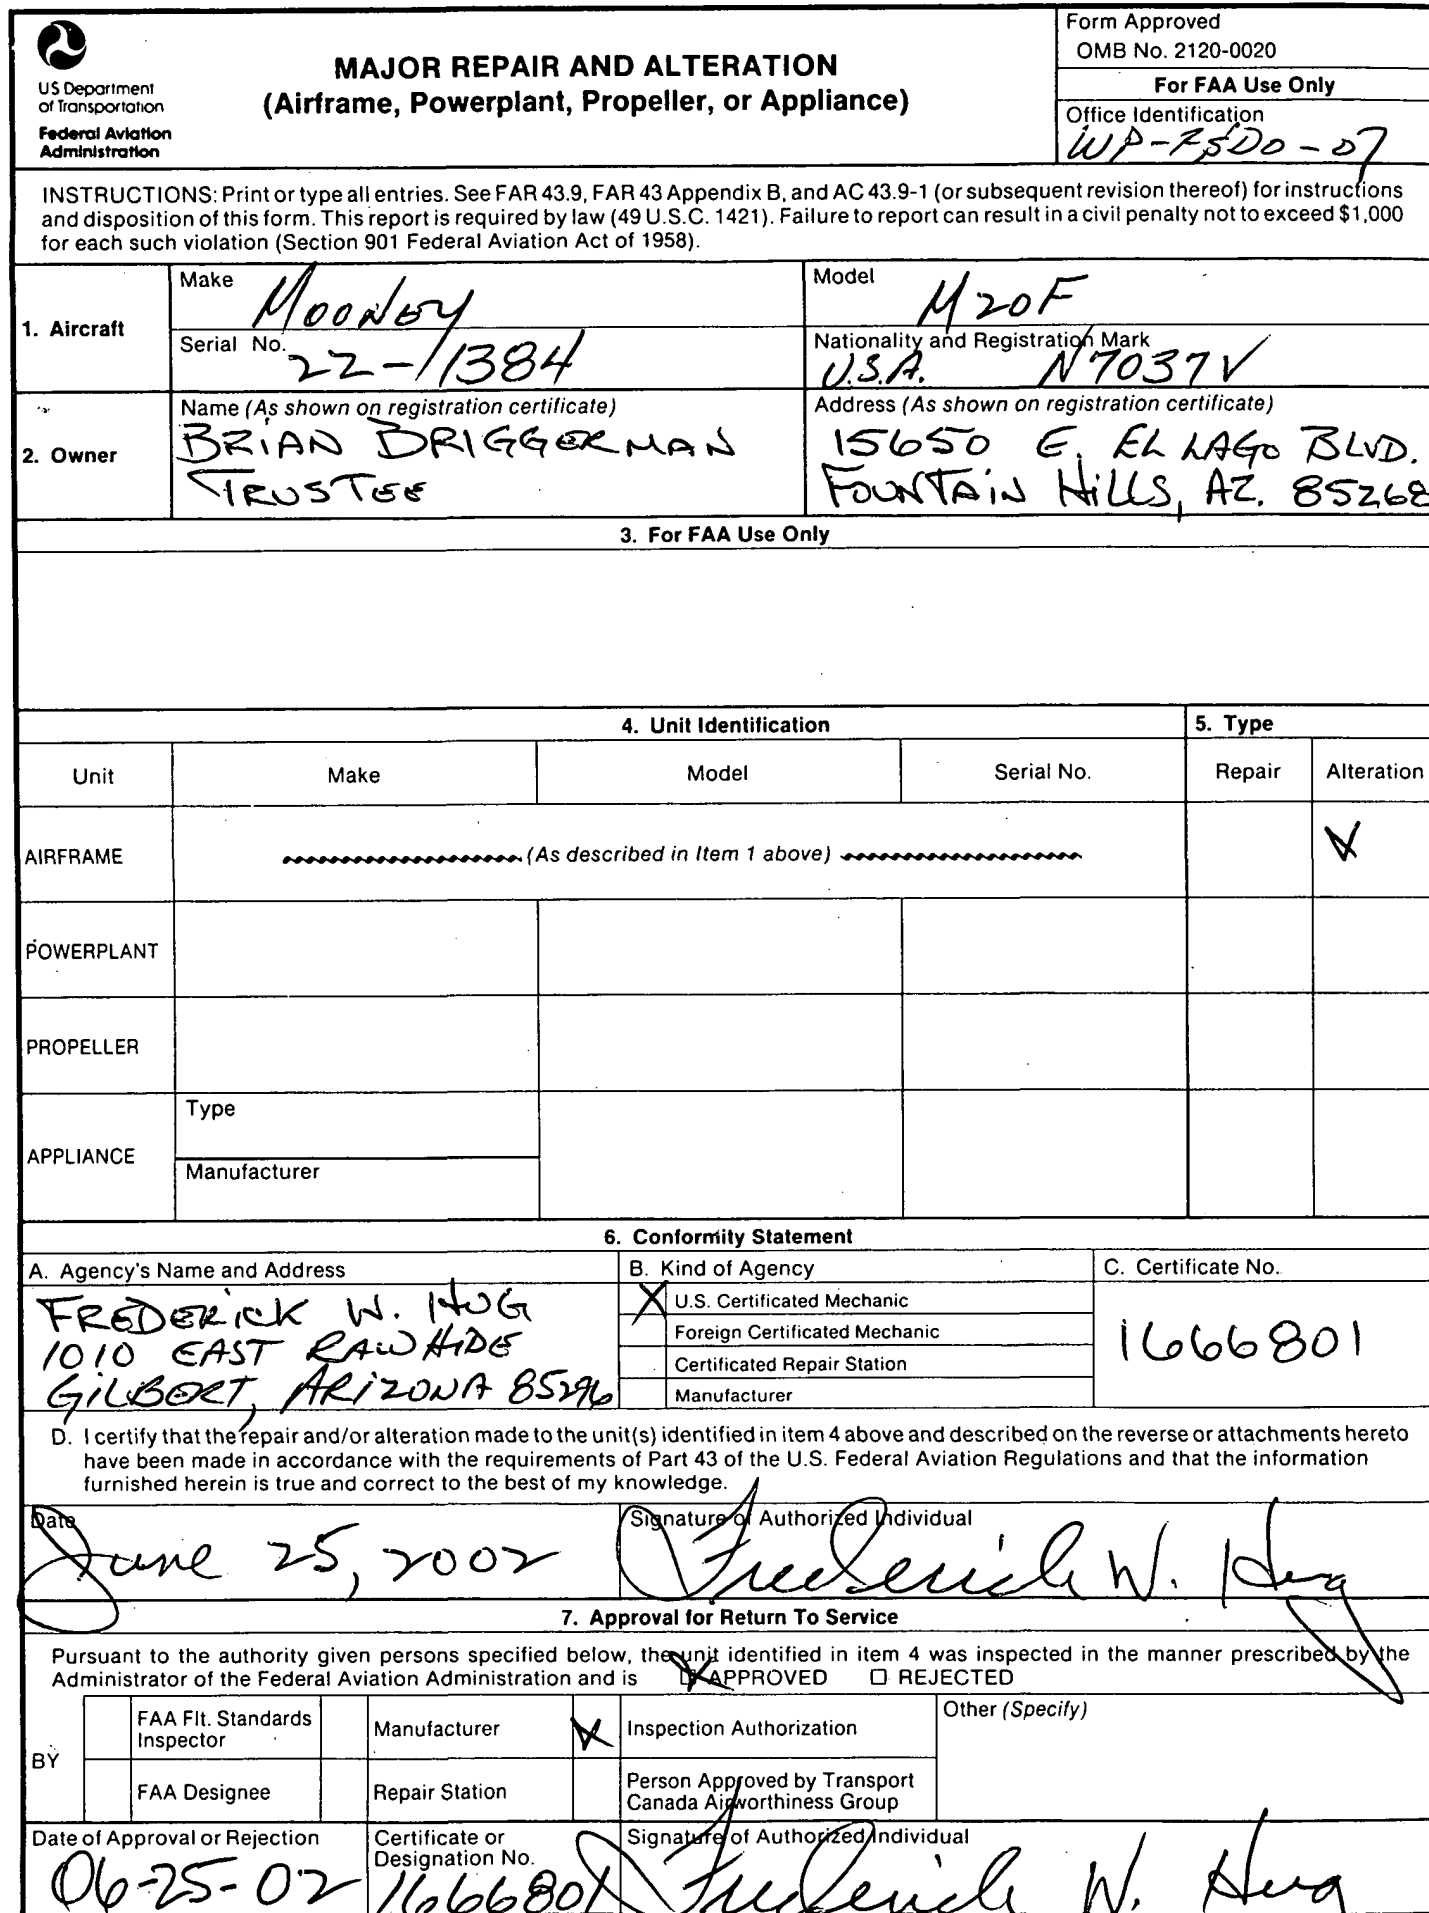 US Department
of Transportation
Federal Aviation
Administration
MAJOR REPAIR AND ALTERATION
(Airframe, Powerplant, Propeller, or Appliance)
Form Approved
OMB No. 2120-0020
For FAA Use Only
Office Identification
WP-FSDO-07
INSTRUCTIONS: Print or type all entries. See FAR 43.9, FAR 43 Appendix B, and AC 43.9-1 (or subsequent revision thereof) for instructions
and disposition of this form. This report is required by law (49 U.S.C. 1421). Failure to report can result in a civil penalty not to exceed $1,000
for each such violation (Section 901 Federal Aviation Act of 1958).
1. Aircraft
Make
MOONEY
Model
M20F
Serial No.
22-1384
Nationality and Registration Mark
U.S.A. N7037V
2. Owner
Name (As shown on registration certificate)
BRIAN BRIGGERMAN
TRUSTEE
Address (As shown on registration certificate)
15650 E. EL LAGO BLVD.
FOUNTAIN HILLS, AZ. 85268
3. For FAA Use Only
4. Unit Identification
5. Type
Unit Make Model Serial No. Repair Alteration
AIRFRAME (As described in Item 1 above) X
POWERPLANT
PROPELLER
APPLIANCE
Type
Manufacturer
6. Conformity Statement
A. Agency's Name and Address
FREDERICK W. HUG
1010 EAST RAWHIDE
GILBERT, ARIZONA 85296
B. Kind of Agency
X U.S. Certificated Mechanic
Foreign Certificated Mechanic
Certificated Repair Station
Manufacturer
C. Certificate No.
1666801
D. I certify that the repair and/or alteration made to the unit(s) identified in item 4 above and described on the reverse or attachments hereto
have been made in accordance with the requirements of Part 43 of the U.S. Federal Aviation Regulations and that the information
furnished herein is true and correct to the best of my knowledge.
Date
June 25, 2002
Signature of Authorized Individual
Frederick W. Hug
7. Approval for Return To Service
Pursuant to the authority given persons specified below, the unit identified in item 4 was inspected in the manner prescribed by the
Administrator of the Federal Aviation Administration and is X APPROVED ☐ REJECTED
BY
FAA Flt. Standards
Inspector
Manufacturer
X Inspection Authorization
Other (Specify)
FAA Designee
Repair Station
Person Approved by Transport
Canada Airworthiness Group
Date of Approval or Rejection
06-25-02
Certificate or
Designation No.
1666801
Signature of Authorized Individual
Frederick W. Hug